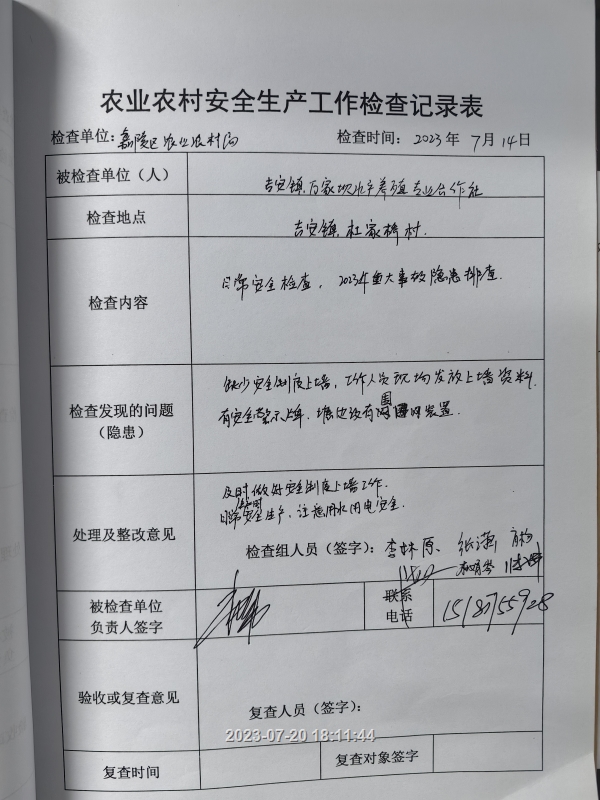 农业农村安全生产工作检查记录表
检查单位: 嘉陵区农业农村局 检查时间: 2023年 7月14日
被检查单位(人) 吉安镇万家坝水产养殖专业合作社
检查地点 吉安镇杜家桥村.
检查内容 日常安全检查, 2023年重大事故隐患排查.
检查发现的问题
(隐患)
缺少安全制度上墙, 工作人员现场发放上墙资料.
有安全警示牌. 塘边没有围网装置.
处理及整改意见
及时做好安全制度上墙工作.
日常安全生产, 注意用水用电安全.
检查组人员(签字):
被检查单位
负责人签字
联系
电话
验收或复查意见
复查人员(签字):
2023-07-20 18:11:44
复查时间 复查对象签字